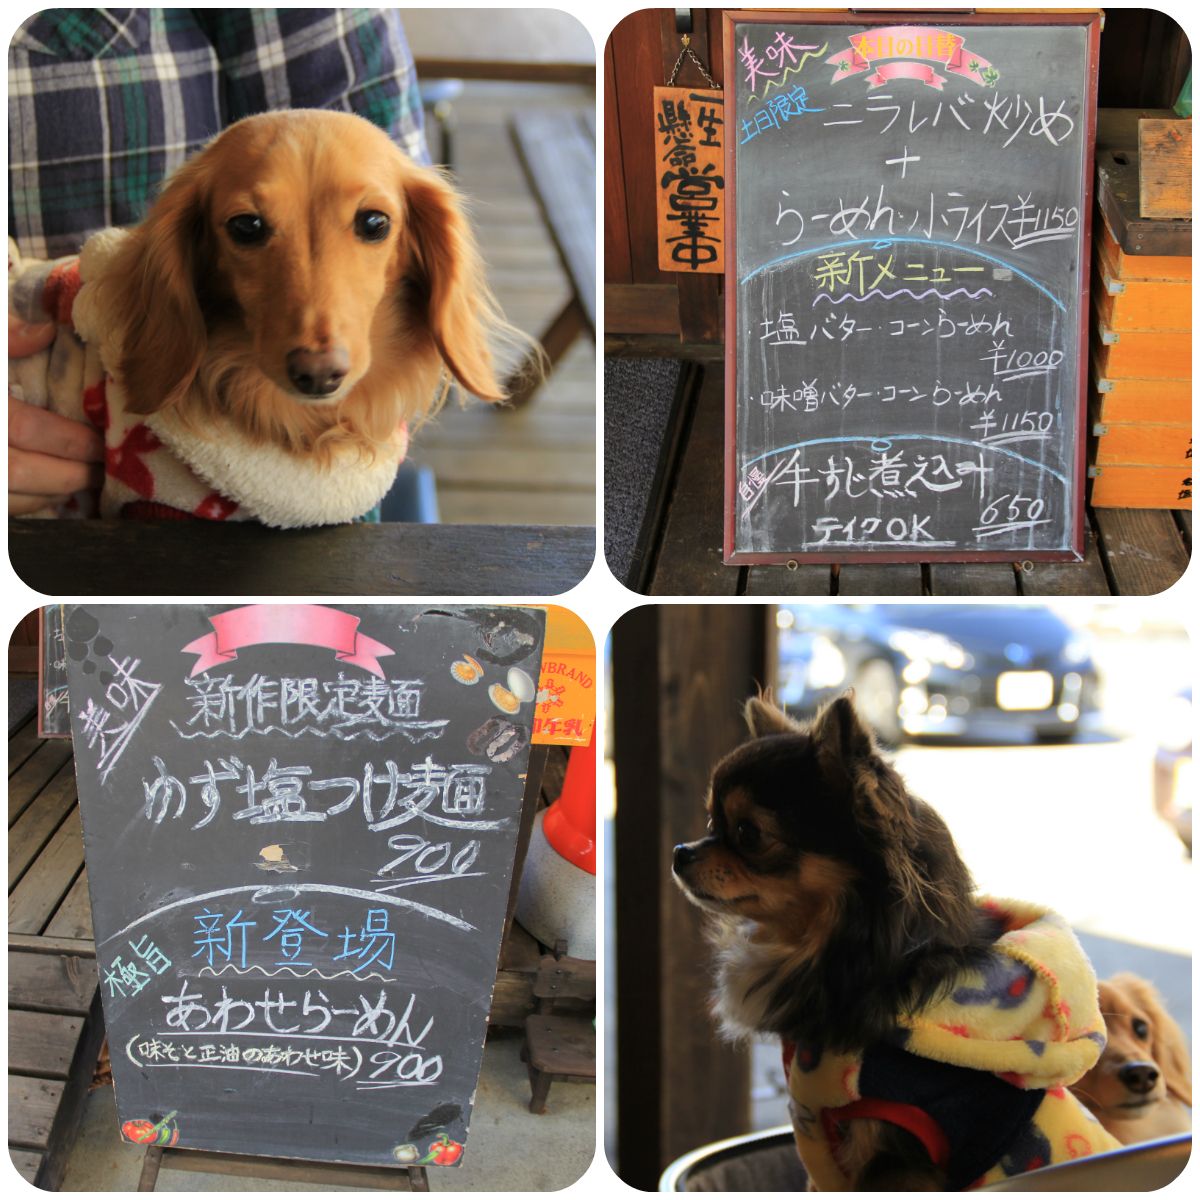 一生
懸命
営業中
美味
本日の日替
土日限定
ニラレバ炒め
+
らーめん・小ライス ¥1150
新メニュー
・塩バター・コーンらーめん
¥1000
・味噌バター・コーンらーめん
¥1150
自慢
牛すじ煮込み
650
テイクOK
美味
新作限定麺
ゆず塩つけ麺
900
新登場
極旨
あわせらーめん
(味そと正油のあわせ味) 900